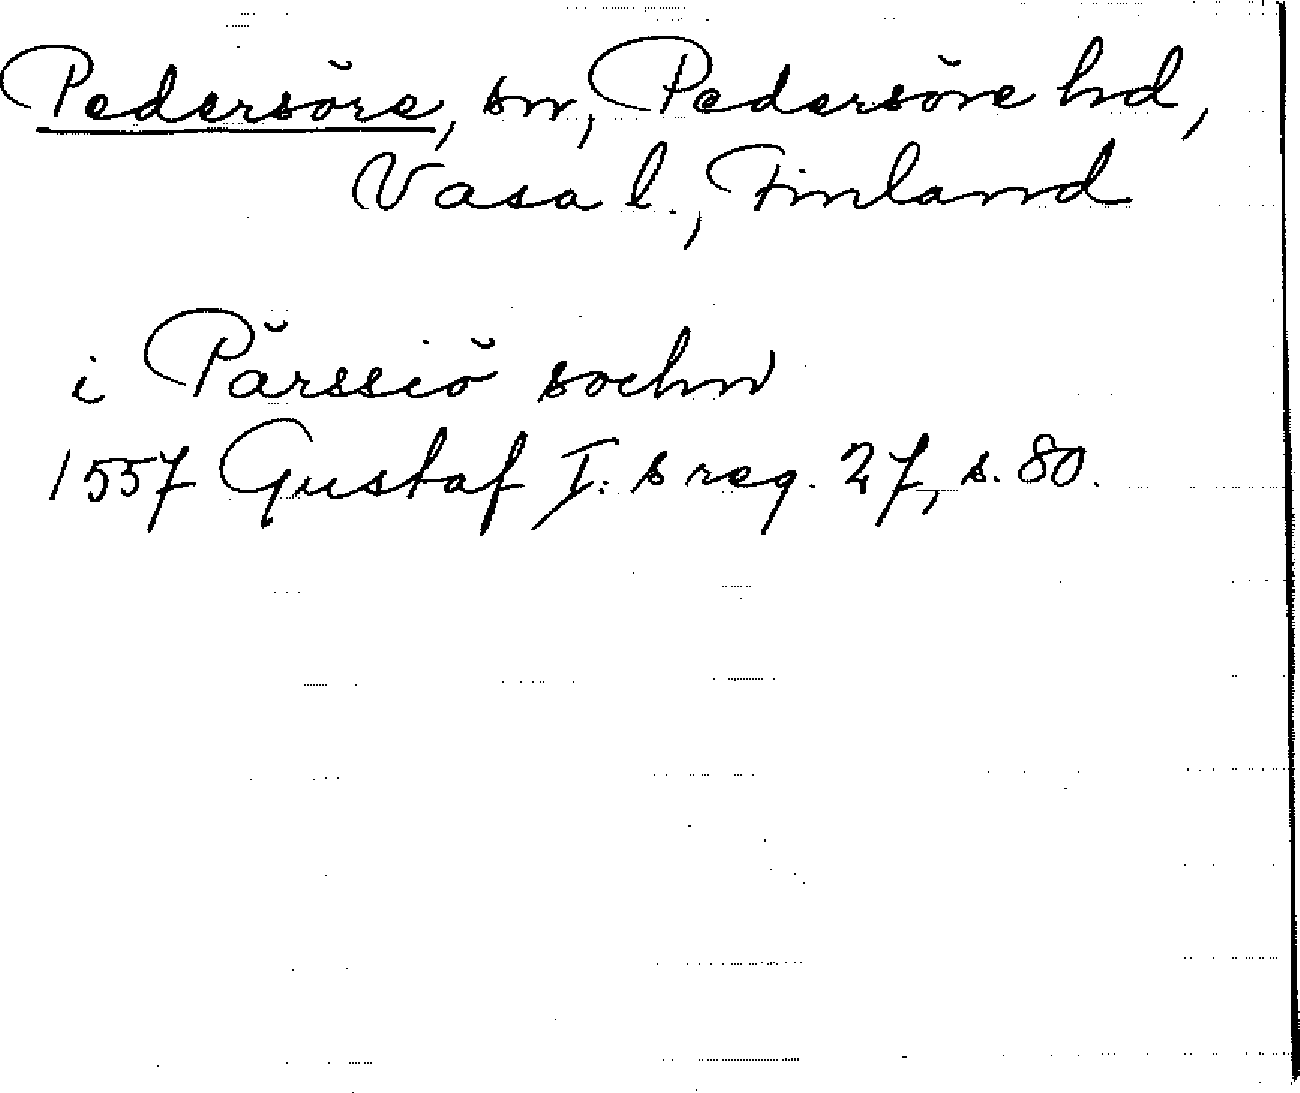 Pedersöre, sn, Pedersöre hd,
Vasa l., Finland
i Pärssiö sochn
1557 Gustaf I:s reg. 27, s. 80.